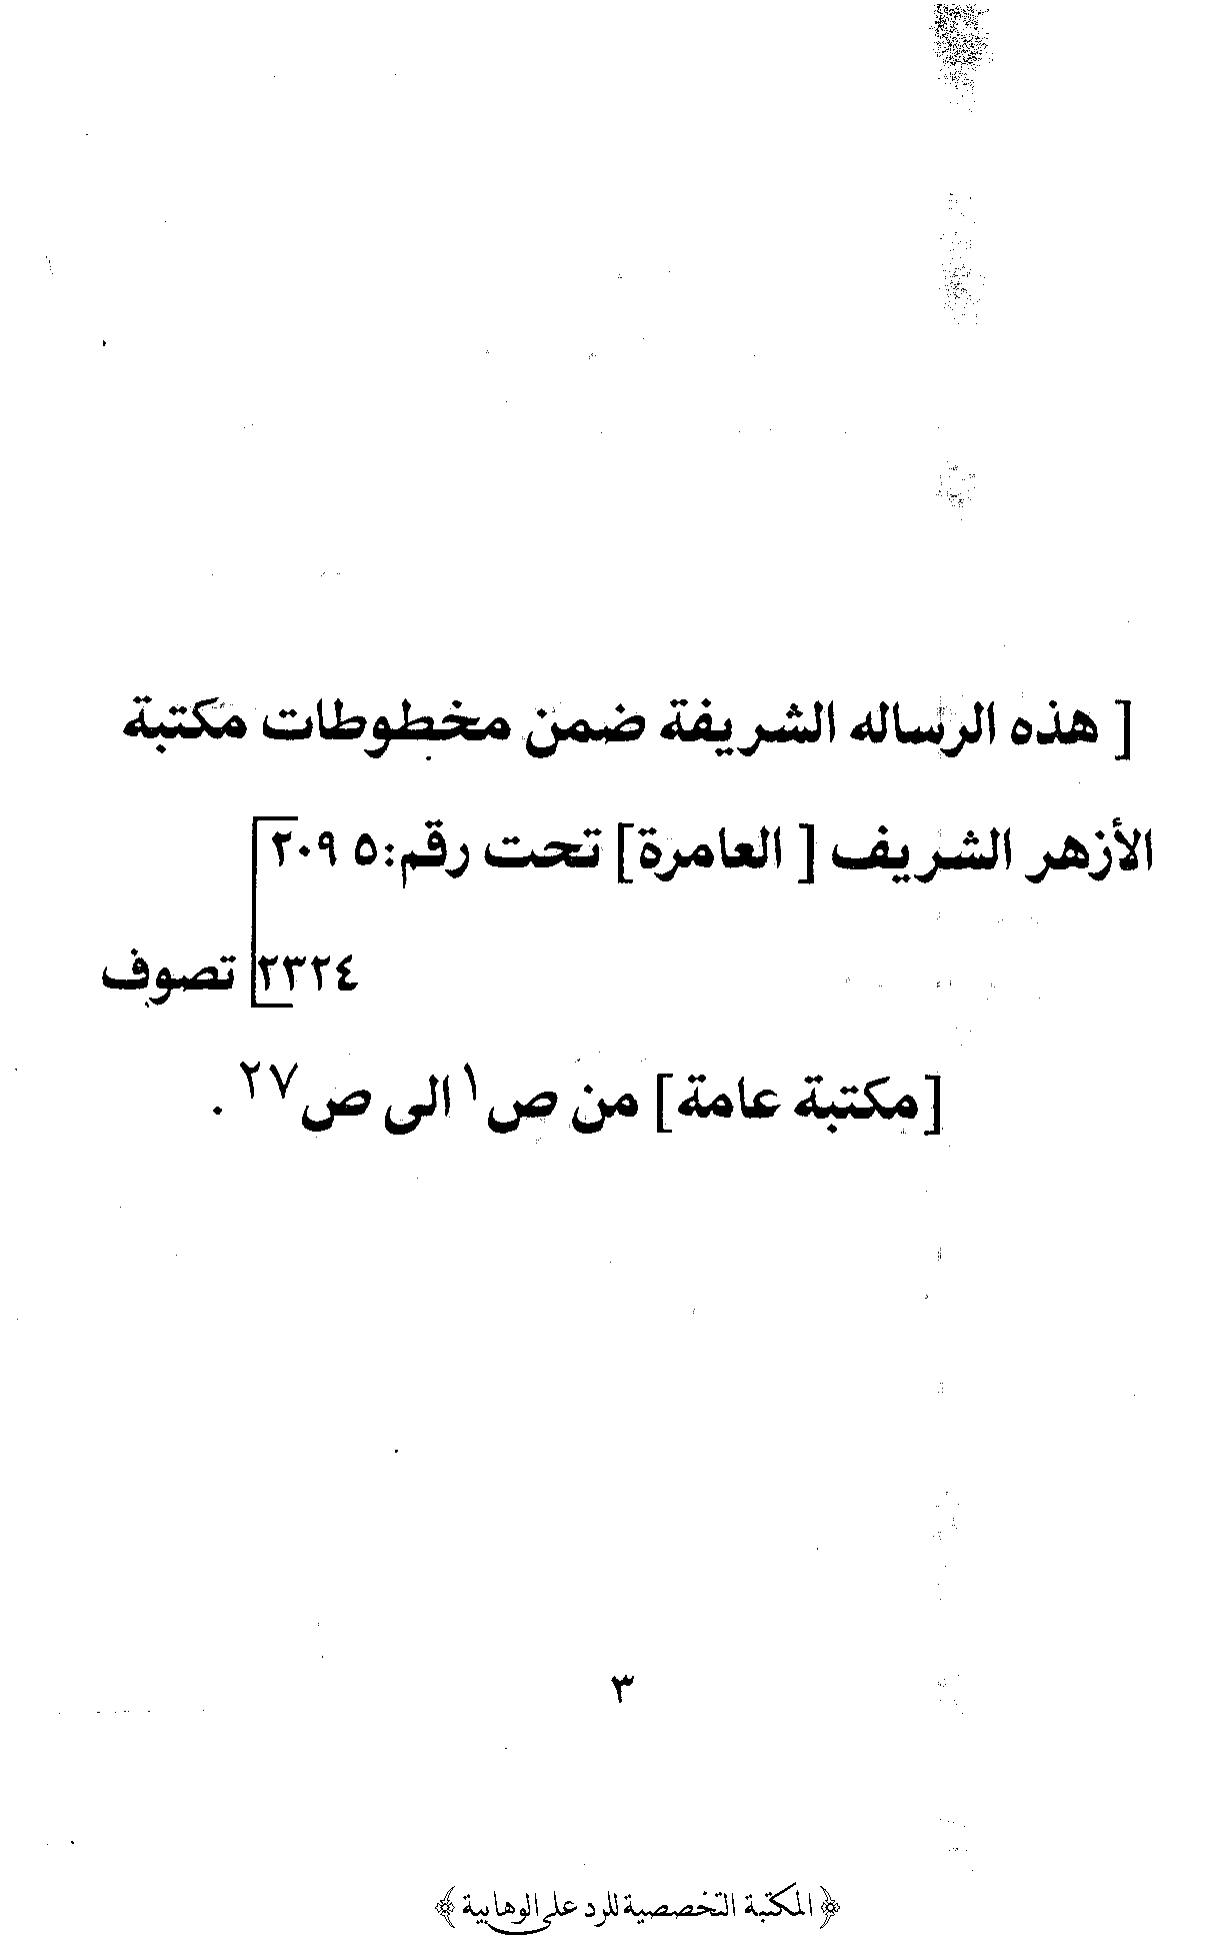 [ هذه الرساله الشريفة ضمن مخطوطات مكتبة
الأزهر الشريف [ العامرة] تحت رقم:٢٠٩٥
٢٣٢٤] تصوف
[مكتبة عامة] من ص١ الى ص٢٧ .
٣
﴿ المكتبة التخصصية للرد على الوهابية ﴾